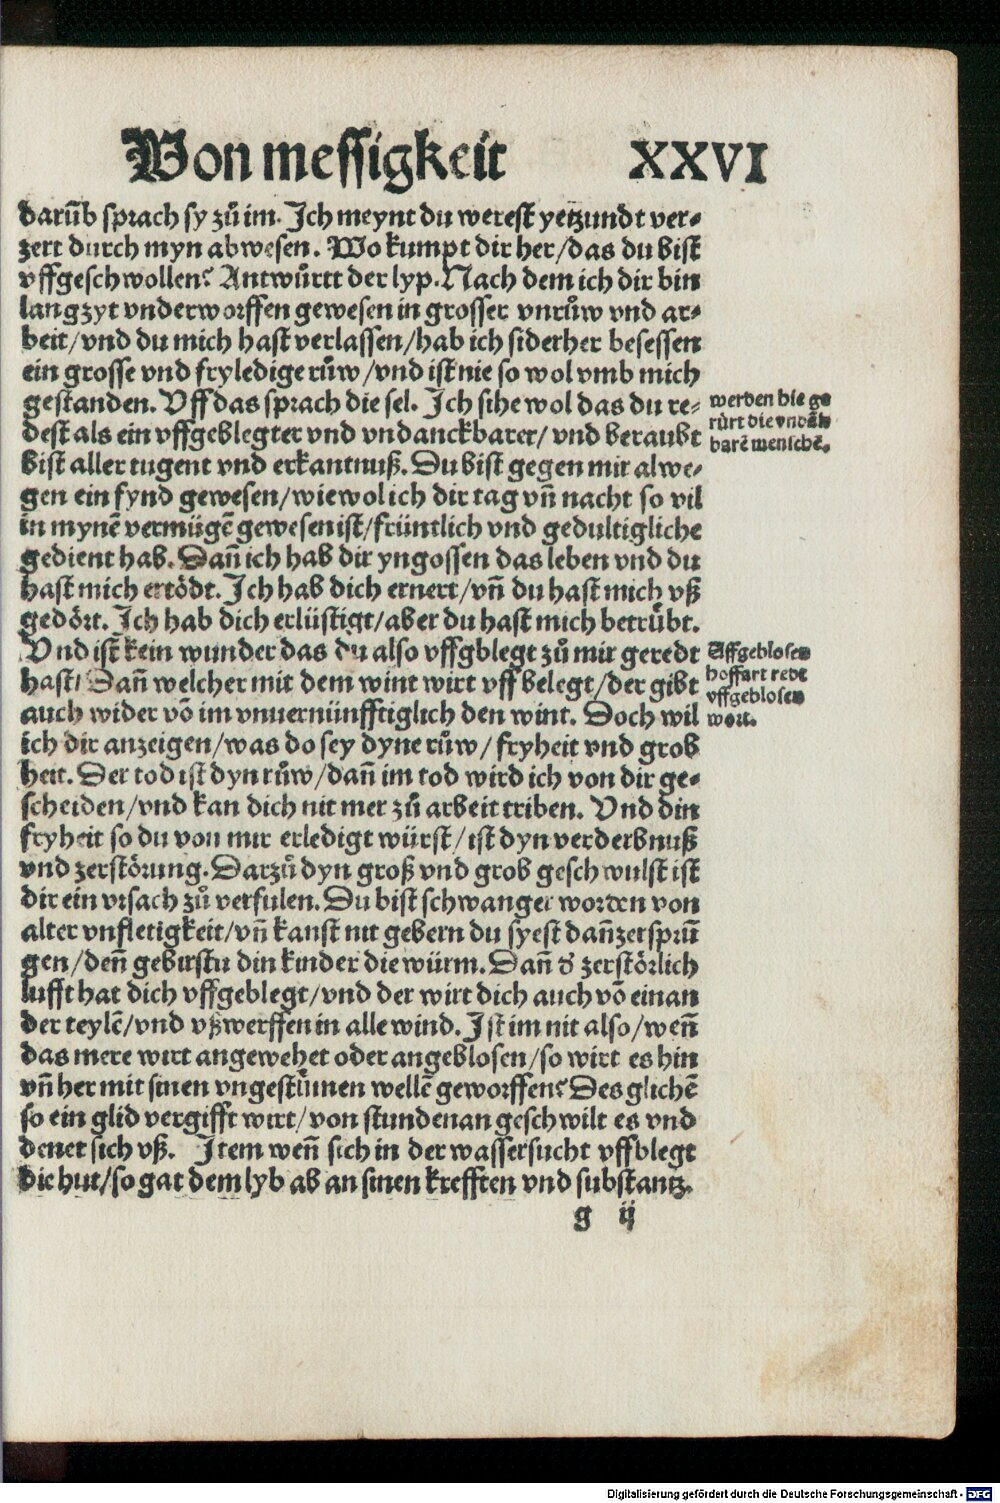 Von messigkeit XXVI
darūb sprach sy zů im. Ich meynt du werest yetzundt ver-
zert durch myn abwesen. Wo kumpt dir her/das du bist
vffgeschwollen? Antwůrtt der lyp. Nach dem ich dir bin
langzyt vnderworffen gewesen in grosser vnrůw vnd ar-
beit/vnd du mich hast verlassen/hab ich siderher besessen
ein grosse vnd fryledige růw/vnd ist nie so wol vmb mich
gestanden. Vff das sprach die sel. Ich sihe wol das du re-
dest als ein vffgeblegter vnd vndanckbarer/vnd beraubt
bist aller tugent vnd erkantnuß. Du bist gegen mir alwe-
gen ein fynd gewesen/wiewol ich dir tag vn̄ nacht so vil
in mynē vermügē gewesen ist/früntlich vnd gedultigliche
gedient hab. Dan̄ ich hab dir yngossen das leben vnd du
hast mich ertödt. Ich hab dich ernert/vn̄ du hast mich vß
gedört. Ich hab dich erlüstigt/aber du hast mich betrůbt.
Vnd ist kein wunder das du also vffgblegt zů mir geredt
hast/ Dan̄ welcher mit dem wint wirt vff belegt/der gibt
auch wider vō im vnuernünfftiglich den wint. Doch wil
ich dir anzeigen/was do sey dyne růw/ fryheit vnd grob
heit. Der tod ist dyn růw/dan̄ im tod wird ich von dir ge-
scheiden/vnd kan dich nit mer zů arbeit triben. Vnd din
fryheit so du von mir erledigt würst/ist dyn verderbnuß
vnd zerstörung. Darzů dyn groß vnd grob geschwulst ist
dir ein vrsach zů verfulen. Du bist schwanger worden von
alter vnfletigkeit/vn̄ kanst nit gebern du syest dan̄ zersprū
gen/den̄ gebirstu din kinder die würm. Dan̄ d' zerstörlich
lufft hat dich vffgeblegt/vnd der wirt dich auch vō einan
der teylē/vnd vßwerffen in alle wind. Ist im nit also/wen̄
das mere wirt angewehet oder angeblosen/so wirt es hin
vn̄ her mit sinen vngestůmen wellē geworffen? Des glichē
so ein glid vergifft wirt/von stunden an geschwilt es vnd
denet sich vß. Item wen̄ sich in der wassersucht vffblegt
die hut/so gat dem lyb ab an sinen krefften vnd substantz.
g ij
werden hie ge
rürt die vndāck
barē menschē.
Vffgeblosen
hoffart redt
vffgeblosen
wort.
Digitalisierung gefördert durch die Deutsche Forschungsgemeinschaft - DFG